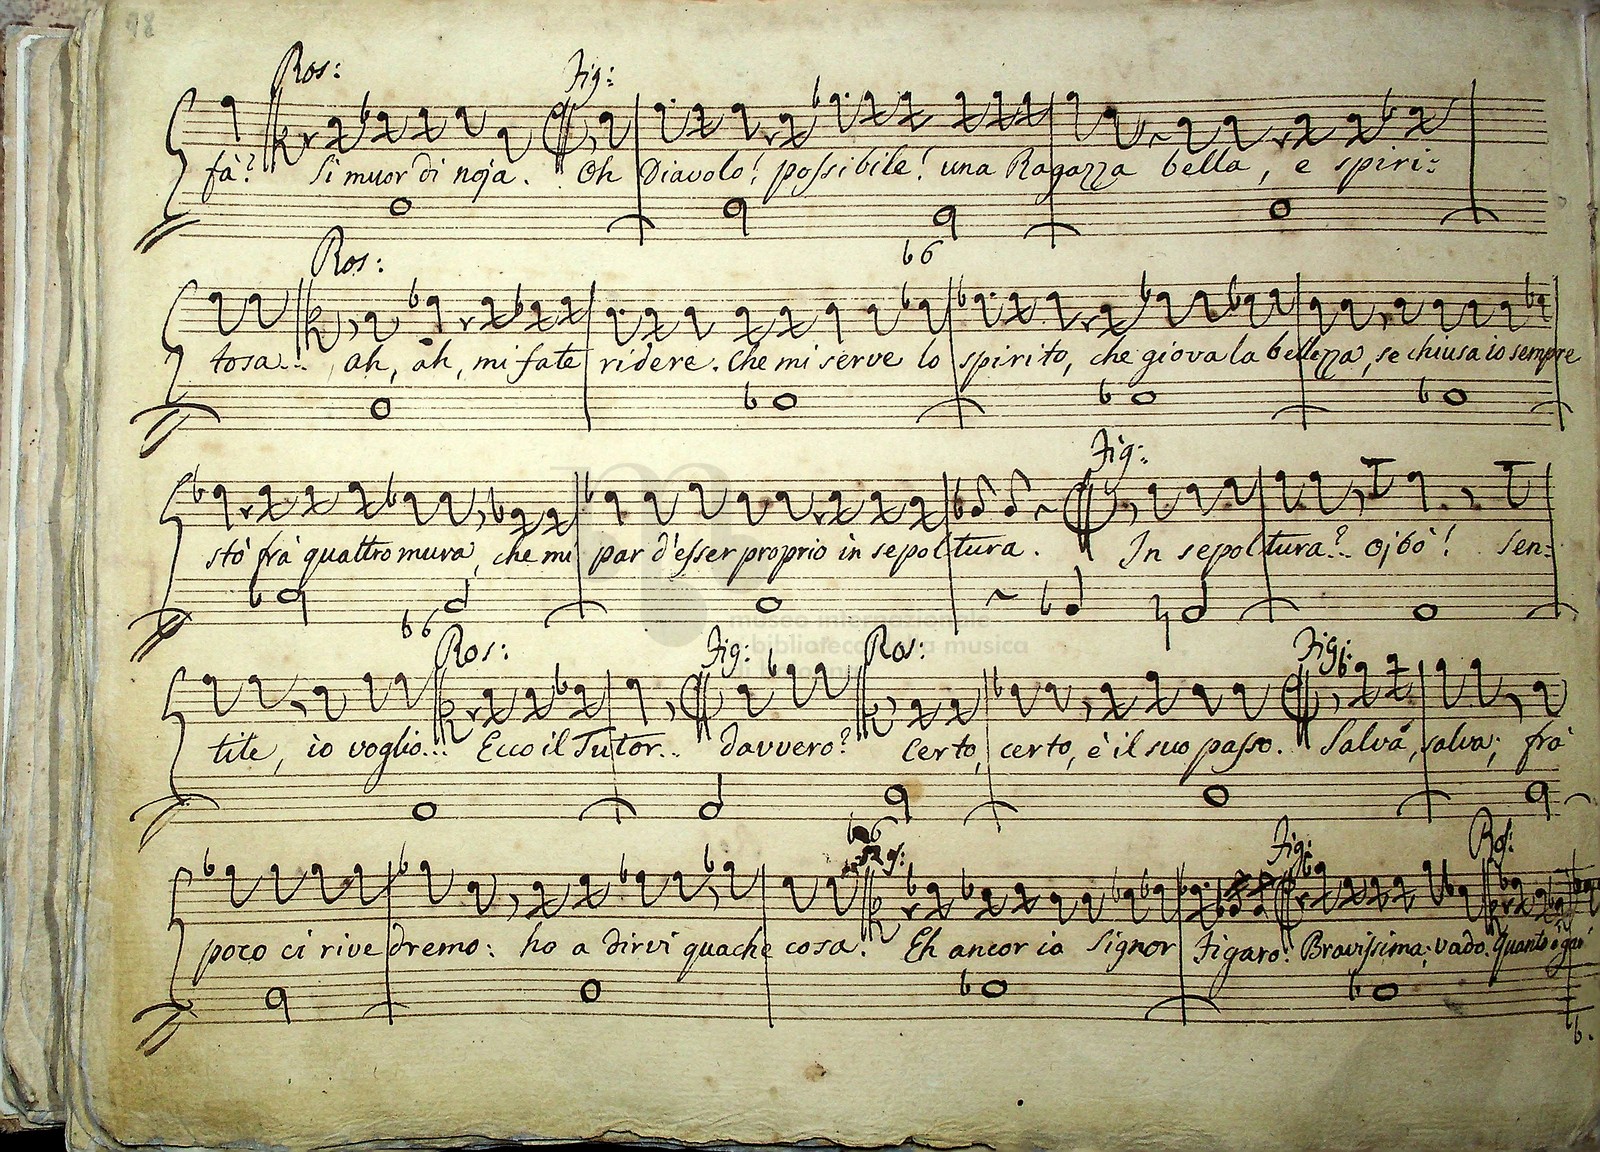 98
Ros: Fig:
fà? Si muor di noja. Oh Diavolo! possibile! una Ragazza bella, e spiri:
b6
Ros:
tosa... ah, ah, mi fate ridere. Che mi serve lo spirito, che giova la bellezza, se chiusa io sempre
Fig:
stò frà quattro mura, che mi par d'esser proprio in sepoltura. In sepoltura?.. ojbò! Sen:
b6
Ros: Fig: Ros: Fig:
tite, io voglio... Ecco il Tutor.. davvero? Certo, certo, è il suo passo. Salva, salva; frà
b6
Fig: Ros:
poco ci rivedremo: ho a dirvi quache cosa. Eh ancor io Signor Figaro. Bravissima; vado. Quanto è
museo internazionale
e biblioteca della musica